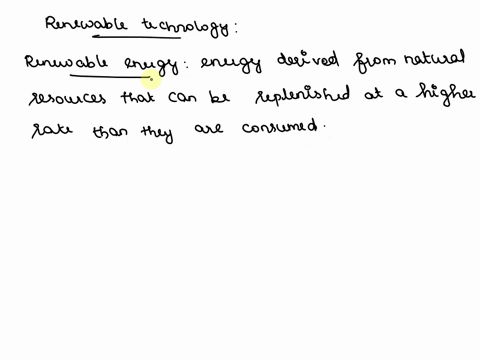 Renewable technology:
Renewable energy: energy derived from natural
resources that can be replenished at a higher
rate than they are consumed.